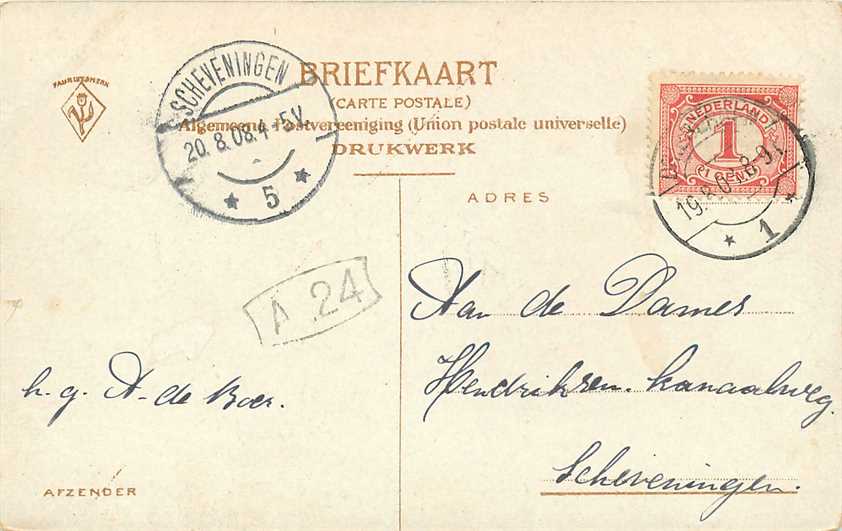 FABRIEKSMERK
SCHEVENINGEN
20.8.08.4-5V.
5
BRIEFKAART
(CARTE POSTALE)
Algemeene Postvereeniging (Union postale universelle)
DRUKWERK
ADRES
NEDERLAND
1
(1 CENT)
19.8.0 8-9
1
A 24
Aan de Dames
Hendriksen. Kanaalweg.
Scheveningen.
h. g. A. de Boer.
AFZENDER